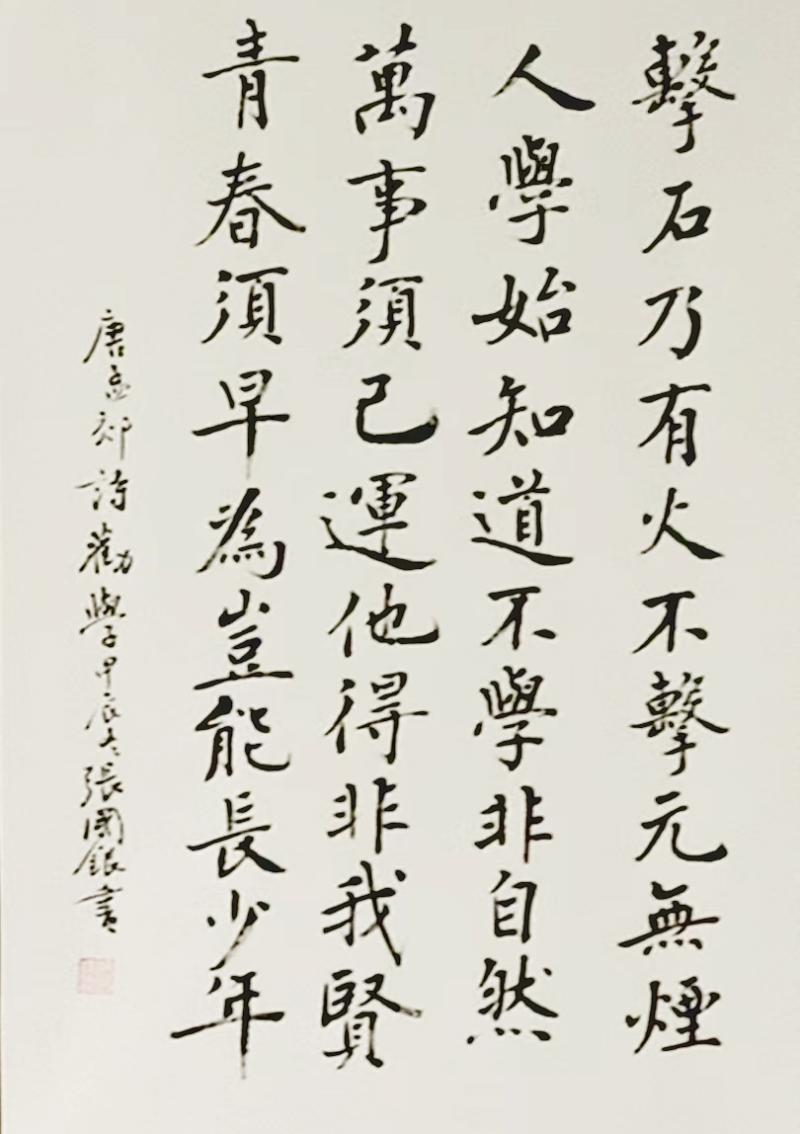 擊石乃有火不擊元無煙
人學始知道不學非自然
萬事須己運他得非我賢
青春須早為豈能長少年
唐孟郊詩勸學甲辰冬張國銀書